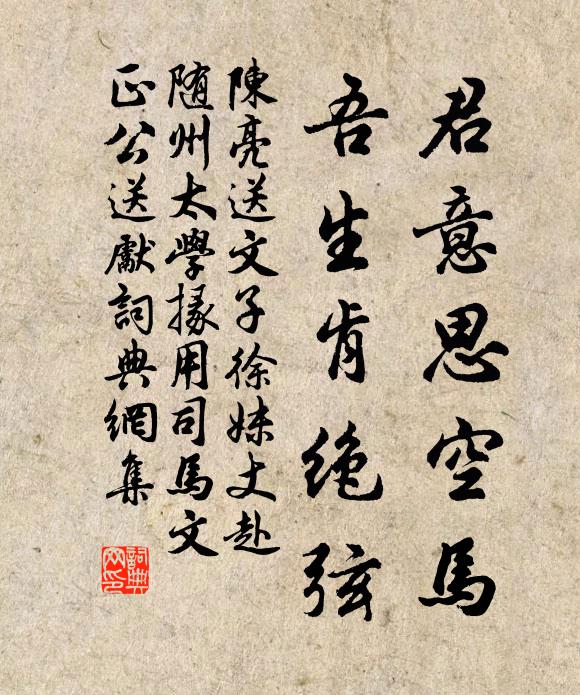 君意思空馬
吾生肯絕弦
陳亮送文子徐妹丈赴
隨州太學掾用司馬文
正公送獻詞典網集
詞典網印